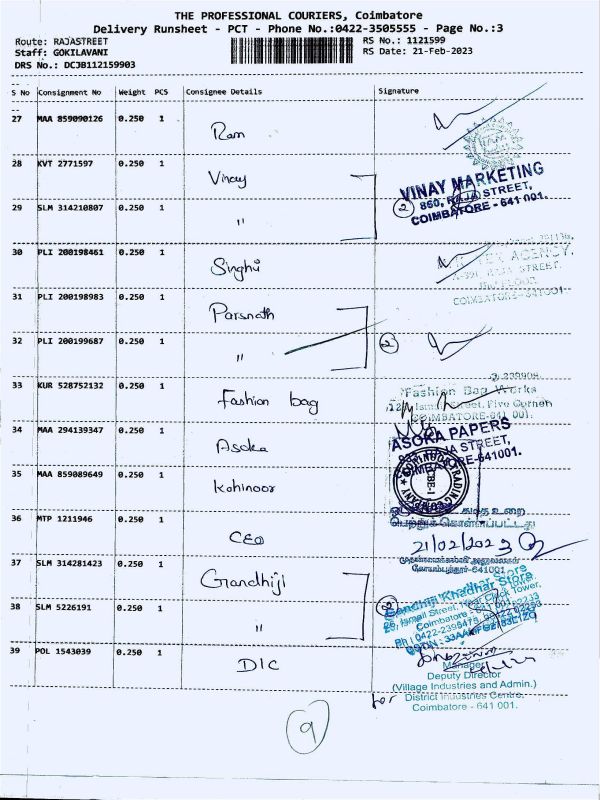 THE PROFESSIONAL COURIERS, Coimbatore
Delivery Runsheet - PCT - Phone No.:0422-3505555 - Page No.:3
Route: RAJASTREET
Staff: GOKILAVANI
DRS No.: DCJB112159903
RS No.: 1121599
RS Date: 21-Feb-2023
S No Consignment No Weight PCS Consignee Details Signature
27 MAA 859090126 0.250 1 Ram
28 KVT 2771597 0.250 1 Vinay
VINAY MARKETING
860, RAJA STREET,
COIMBATORE - 641 001.
29 SLM 314210807 0.250 1 " 2
30 PLI 200198461 0.250 1 Singhvi
AGENCY,
RAJA STREET,
COIMBATORE-641001
31 PLI 200198983 0.250 1 Parsnath
32 PLI 200199687 0.250 1 " 2
33 KUR 528752132 0.250 1 Fashion bag
Fashion Bag Works
Street, Five Corner
COIMBATORE-641 001.
34 MAA 294139347 0.250 1 Asoka
ASOKA PAPERS
RAJA STREET,
COIMBATORE-641001.
35 MAA 859089649 0.250 1 Kohinoor
KOHINOOR TRADING COMPANY
CBE-1
36 MTP 1211946 0.250 1 CEO
உறை
பெற்றுக் கொள்ளப்பட்டது
21/02/2023
முதன்மைக்கல்வி அலுவலகம்
கோயம்புத்தூர்-641001
37 SLM 314281423 0.250 1 Gandhiji
Gandhiji Khadhar Store
26, Ismail Street, Near Clock Tower,
Coimbatore - 641 001
38 SLM 5226191 0.250 1 " 2
39 POL 1543039 0.250 1 DIC
Manager
Deputy Director
(Village Industries and Admin.)
for District Industries Centre,
Coimbatore - 641 001.
9